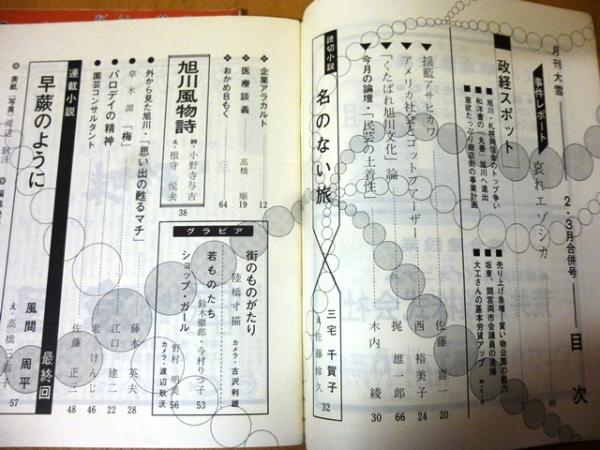 月刊大雪 2・3月合併号 目次
事件レポート
哀れエゾシカ
60
政経スポット
■旭川・札幌両信金のトップ争い
■和洋書の「丸善」旭川へ進出
■意欲たっぷり商店街の事業計画
■売り上げ急増!買い物公園の魅力
■坂東、間宮両市会議員の逮捕
■大工さんの基本労賃アップ
▼揺籃アサヒカワ 佐藤喜一 20
▼アメリカ社会とゴットファーザー 西裕美子 24
▼「くたばれ旭川文化」論 梶雄一郎 66
▼今月の論壇・「民芸の土着性」 木内綾 30
読切小説
名のない旅
三宅千賀子
え・佐藤修久
32
❖企業アラカルト 12
❖医療談義 高橋順 19
❖おかめ8もく 64
旭川風物詩
詩・小野寺与吉
え・根守悦夫
38
グラビア
街のものがたり
陸橋寸描 カメラ・古沢利雄
若ものたち
鈴木徹郎・今村りつ子 53
ショップ・ガール
野村明美 56
カメラ・渡辺耿沃
●外から見た旭川・「思い出の甦るマチ」 藤本英夫 28
●草木譚「梅」 江口建二 22
●パロディの精神 北けんじ 46
●園芸コンサルタント 佐藤正二 48
連載小説
早蕨のように
風間周平
最終回
57